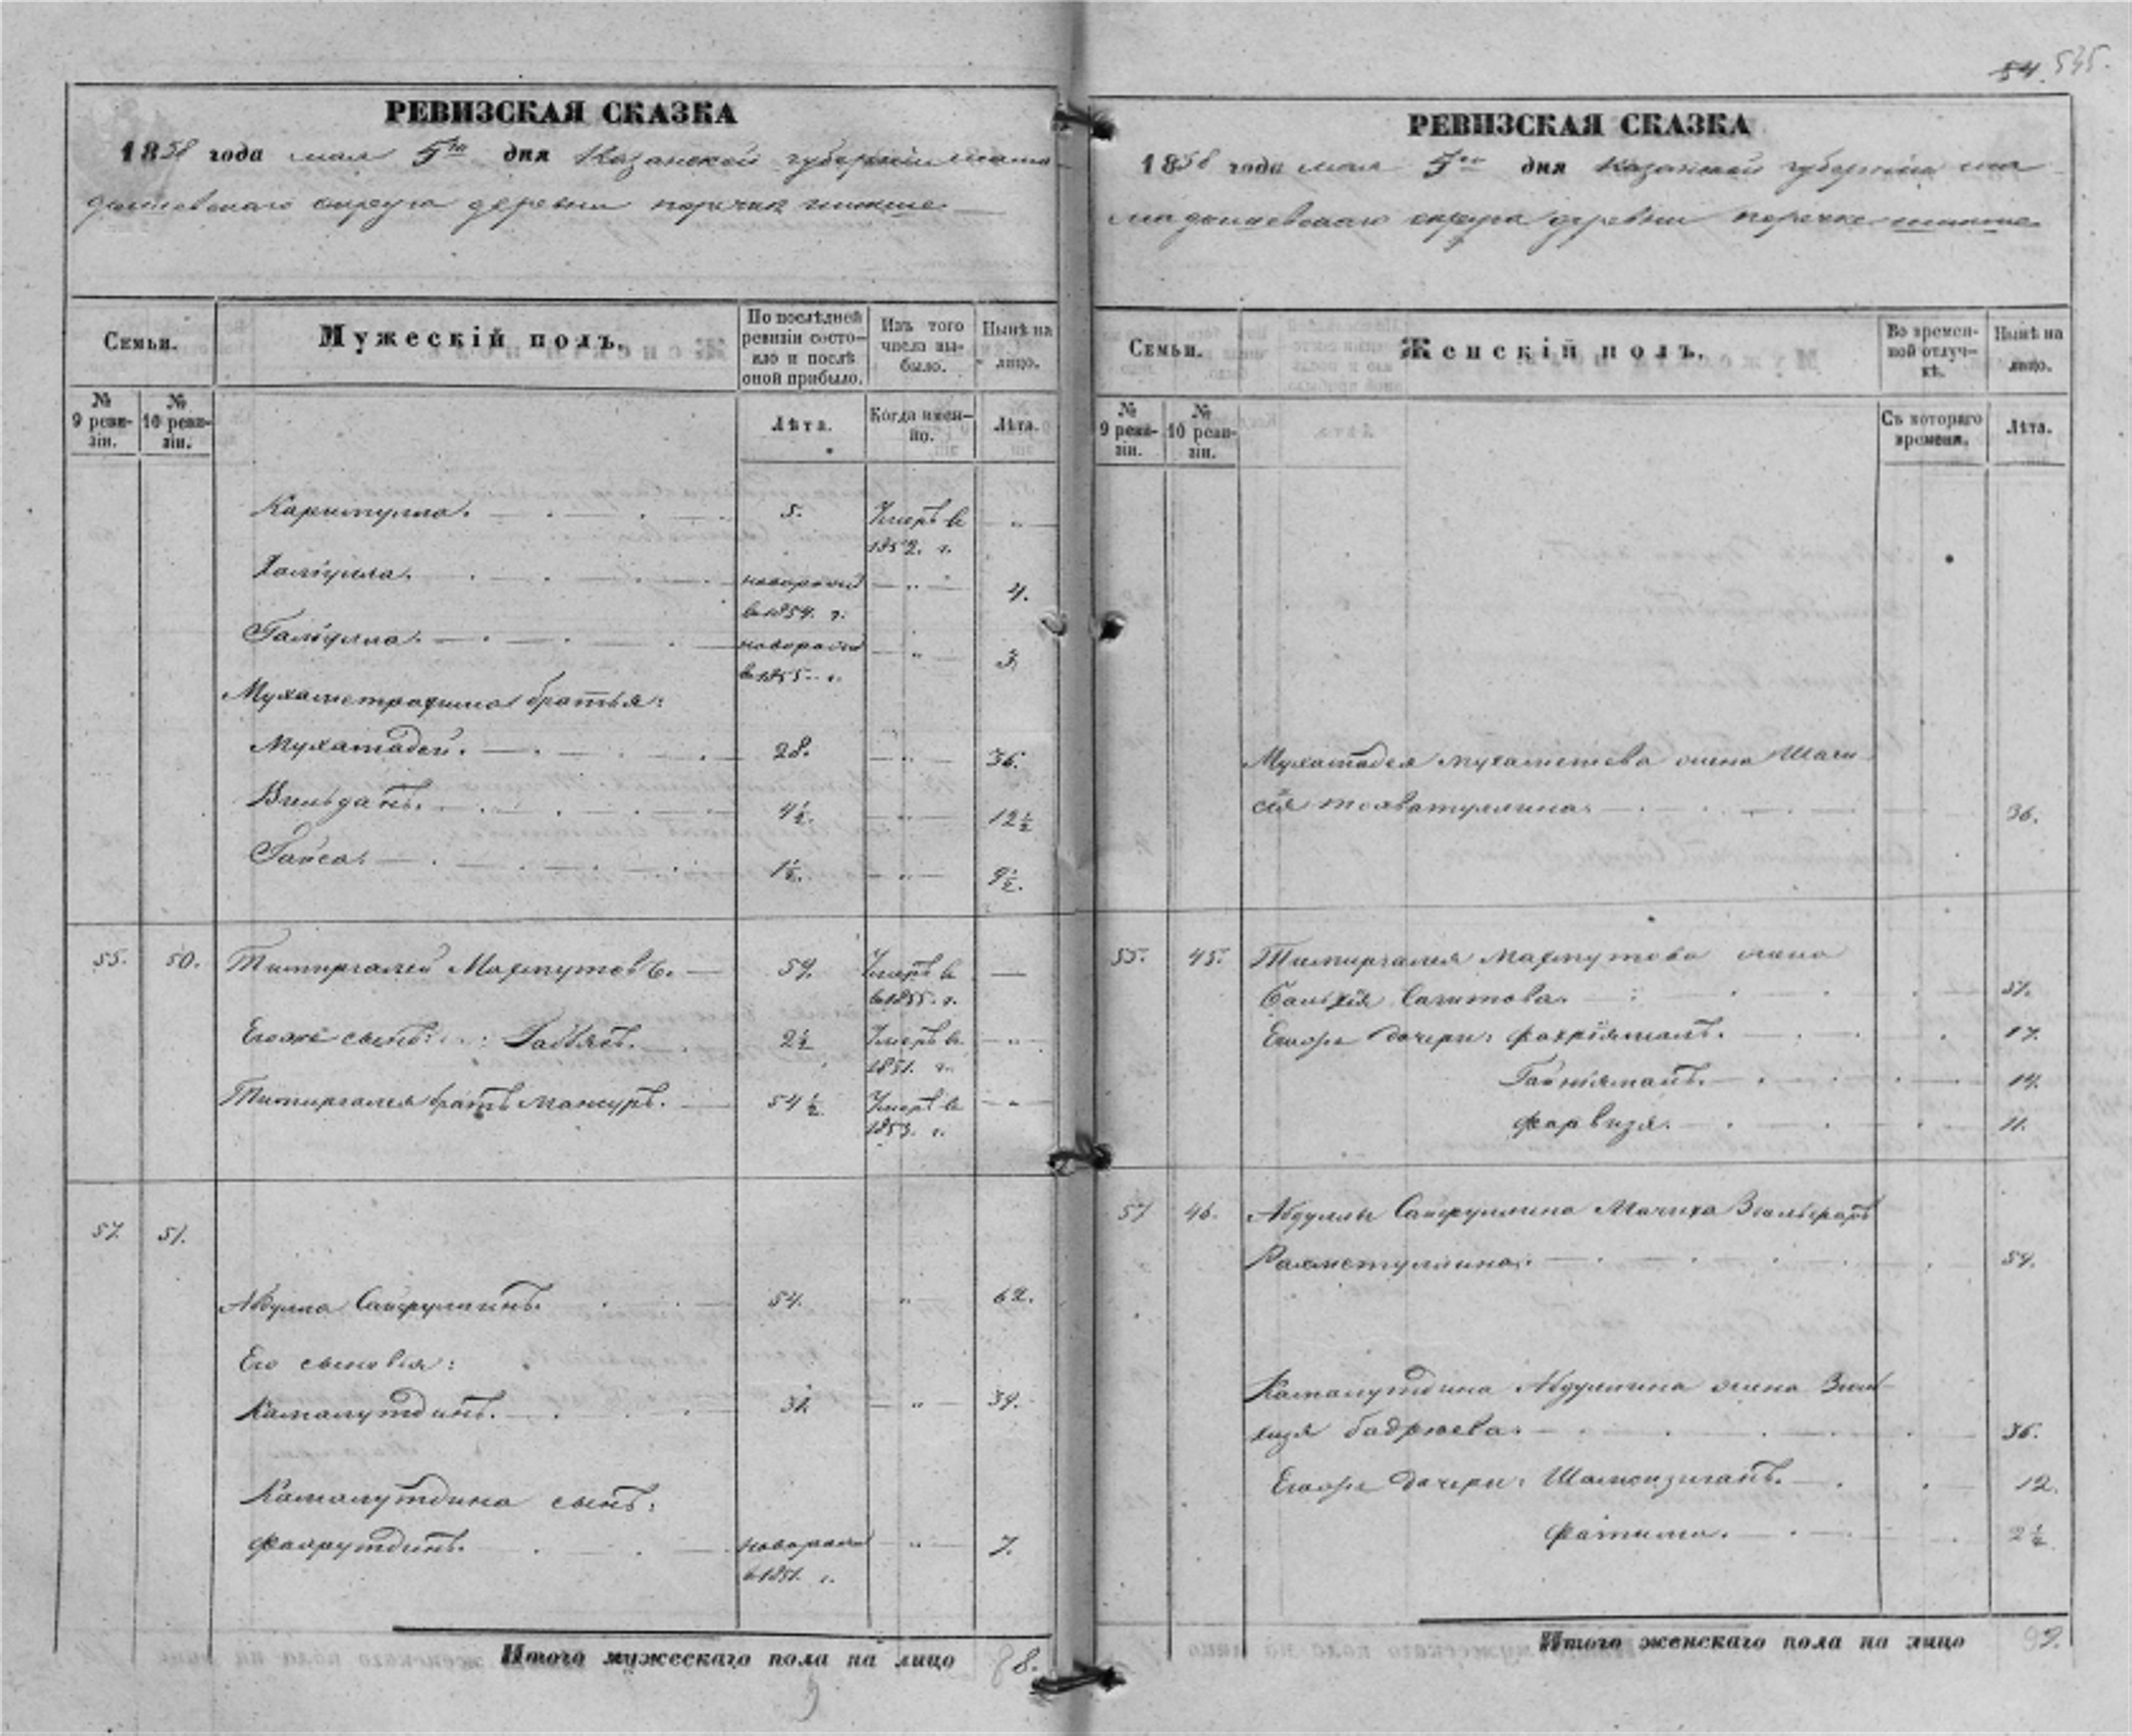 54. 535.
РЕВИЗСКАЯ СКАЗКА
1858 года мая 5го дня Казанской губернии мама-
дышевскаго округа деревни поречки
Семьи.
Мужескій полъ.
По послѣдней ревизіи состояло и послѣ оной прибыло.
Изъ того числа выбыло.
Нынѣ на лицо.
№ 9 ревизіи.
№ 10 ревизіи.
Лѣта.
Когда именно.
Лѣта.
Каримулла. 5. Умеръ в 1852. г. „
Халиулла. новорож в 1854. г. „ 4.
Галиулла. новорож в 1855 г. „ 3
Мухаметрахима братья:
Мухатадей. 28. „ 36.
Вильданъ. 4½. „ 12½
Гайса. 1½. „ 9½.
55. 50. Тимиргалей Махмутовъ. 59. Умеръ в 1855. г. —
Егоже сынъ: 2½ Умеръ в 1851. г. „
Тимиргалея братъ Мансуръ. 54½ Умеръ в 1853. г. „
57. 51.
Абдулла Сайфуллинъ. 54. „ 62.
Его сыновья:
Камалутдинъ. 31. „ 39.
Камалутдина сынъ:
Фахрутдинъ. новорож в 1851. г. „ 7.
Итого мужескаго пола на лицо 8.
РЕВИЗСКАЯ СКАЗКА
1858 года мая 5го дня Казанской губерніи ма
мадышевскаго округа деревни поречки
Семьи.
Женскій полъ.
Во временной отлучкѣ.
Нынѣ на лицо.
№ 9 ревизіи.
№ 10 ревизіи.
Съ котораго времени.
Лѣта.
Мухатадея мухаметева жена Шаги
36.
55. 45. Тимиргалея Махмутова жена
Сагитова. 51.
Егожъ дочери: Фахріямалъ. 17.
Гайніямалъ. 14.
Фарвизя. 11.
57 46. Абдуллы Сайфуллина Мачиха
Рахметуллина. 59.
Камалутдина Абдуллина жена
бадрюева. 36.
Егожъ дочери: 12.
Фатима. 2½
Итого женскаго пола на лицо 9.